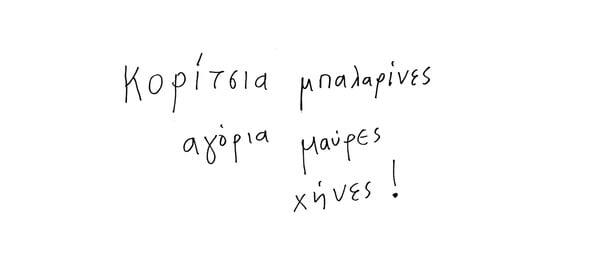 Κορίτσια μπαλαρίνες
αγόρια μαύρες
χήνες!